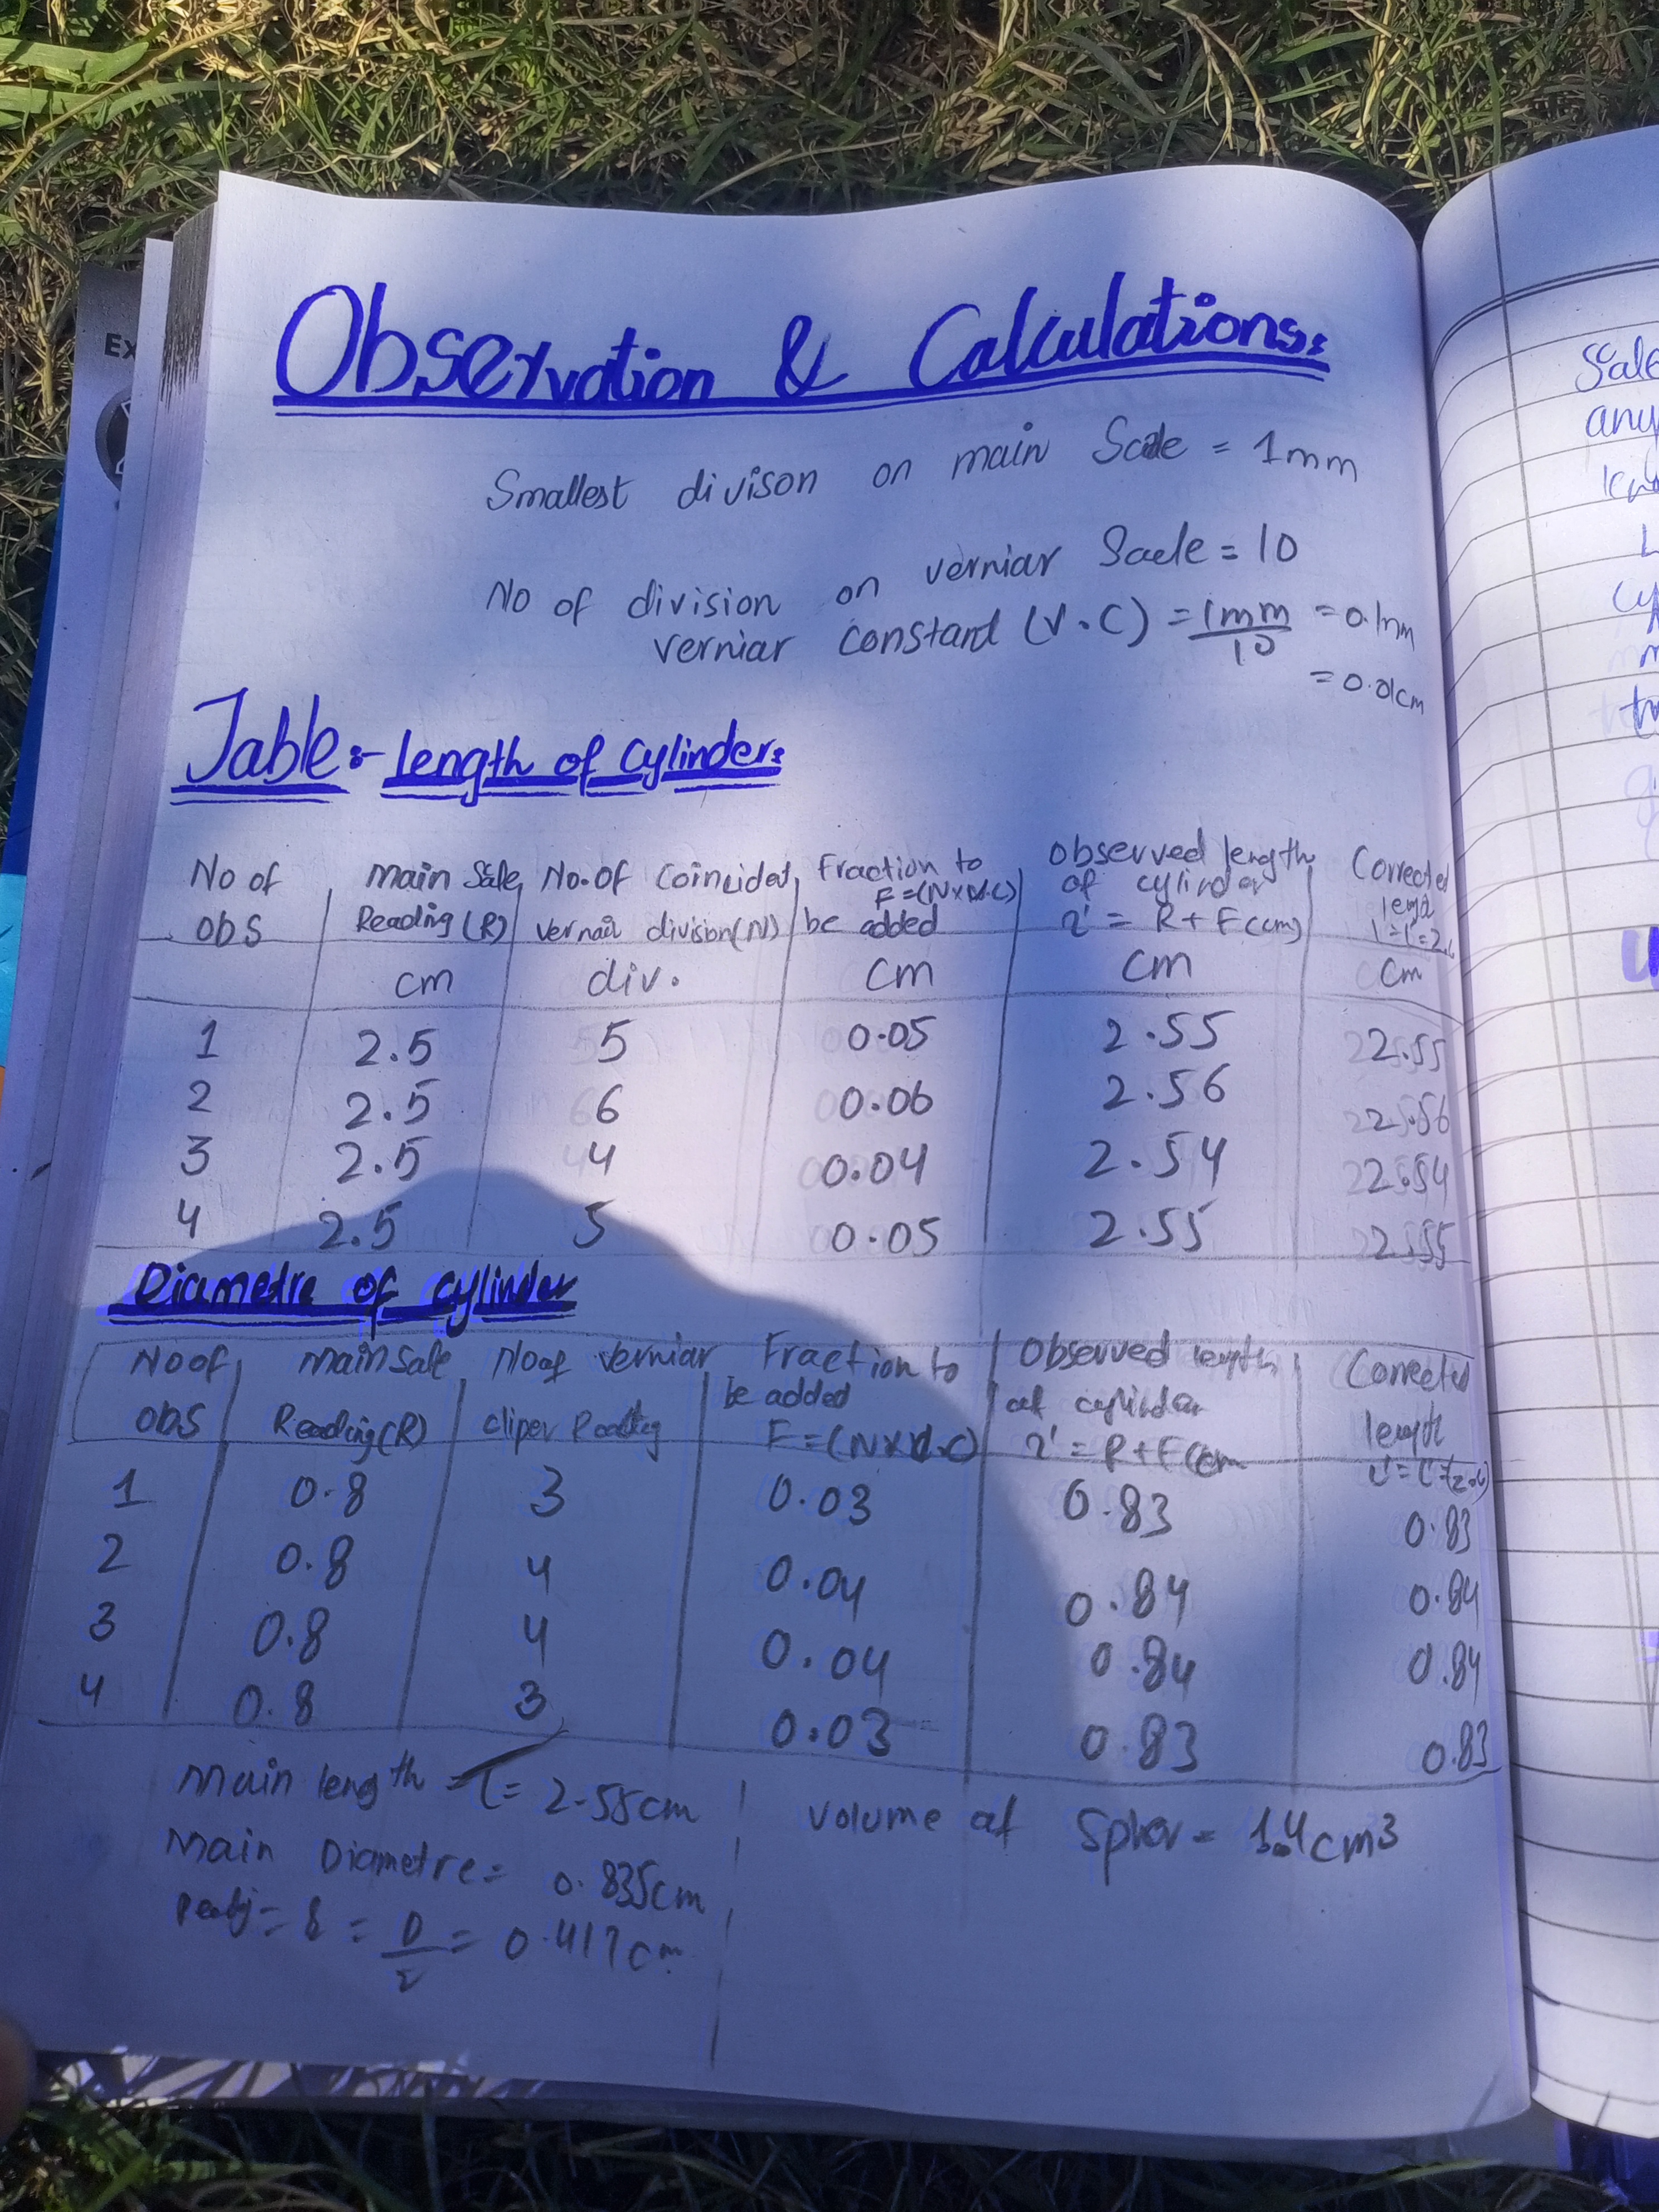 EX
Observation & Calculations:
Smallest divison on main Scale = 1mm
No of division on verniar Scale = 10
verniar constard (V.C) = 1mm/10 = 0.1mm
= 0.01cm
Table:- length of cylinder:
No of OBS | main Sale Reading (R) | No. of Coincidet vernair division(N) | Fraction to be added F=(N×V.C) | Observed length of cylinder r' = R+F(cm) | Corrected
cm | div. | cm | cm | cm
1 | 2.5 | 5 | 0.05 | 2.55 | 2.55
2 | 2.5 | 6 | 0.06 | 2.56 | 2.56
3 | 2.5 | 4 | 0.04 | 2.54 | 2.54
4 | 2.5 | 5 | 0.05 | 2.55 | 2.55
Diametre of cylinder
No of OBS | Main Sale Reading(R) | No of verniar cliper | Fraction to be added F=(N×V.C) | Observed length of cylinder r' = R+F(cm | Corrected length
1 | 0.8 | 3 | 0.03 | 0.83 | 0.83
2 | 0.8 | 4 | 0.04 | 0.84 | 0.84
3 | 0.8 | 4 | 0.04 | 0.84 | 0.84
4 | 0.8 | 3 | 0.03 | 0.83 | 0.83
Main length = l = 2.55cm
Main Diametre = 0.835cm
= D/2 = 0.417cm
volume of Spher = 1.4cm3
Sale
any